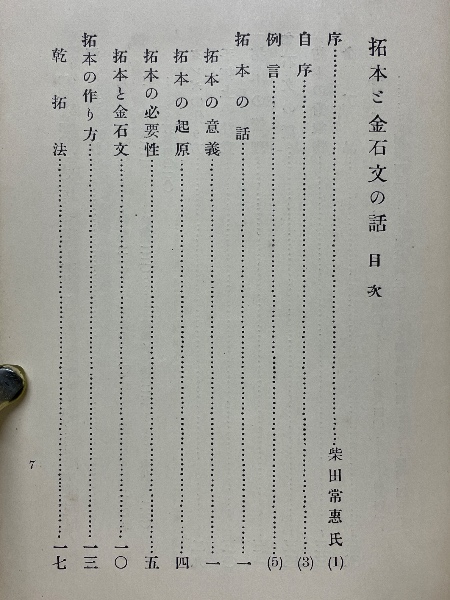 拓本と金石文の話 目次
序……………………柴田常惠氏…(1)
自序……………………(3)
例言……………………(5)
拓本の話……………………一
拓本の意義……………………一
拓本の起原……………………四
拓本の必要性……………………五
拓本と金石文……………………一〇
拓本の作り方……………………一三
乾拓法……………………一七
7